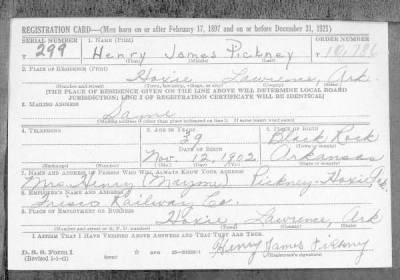 REGISTRATION CARD—(Men born on or after February 17, 1897 and on or before December 31, 1921)
SERIAL NUMBER 1. NAME (Print) ORDER NUMBER
T 299 Henry James Pickney T 10,786
(First) (Middle) (Last)
2. PLACE OF RESIDENCE (Print)
Hoxie Lawrence, Ark.
(Number and street) (Town, township, village, or city) (County) (State)
[THE PLACE OF RESIDENCE GIVEN ON THE LINE ABOVE WILL DETERMINE LOCAL BOARD
JURISDICTION; LINE 2 OF REGISTRATION CERTIFICATE WILL BE IDENTICAL]
3. MAILING ADDRESS
Same
[Mailing address if other than place indicated on line 2. If same insert word same]
4. TELEPHONE 5. AGE IN YEARS 6. PLACE OF BIRTH
39 Black Rock
DATE OF BIRTH (Town or county)
Nov. 12, 1902 Arkansas
(Exchange) (Number) (Mo.) (Day) (Yr.) (State or country)
7. NAME AND ADDRESS OF PERSON WHO WILL ALWAYS KNOW YOUR ADDRESS
Mrs. Henry (Mayme) Pickney-Hoxie, Ark.
8. EMPLOYER'S NAME AND ADDRESS
Frisco Railway Co.
9. PLACE OF EMPLOYMENT OR BUSINESS
Hoxie, Lawrence, Ark
(Number and street or R. F. D. number) (Town) (County) (State)
I AFFIRM THAT I HAVE VERIFIED ABOVE ANSWERS AND THAT THEY ARE TRUE.
D. S. S. Form 1 Henry James Pickney
(Revised 1-1-42) (over) (Registrant's signature)